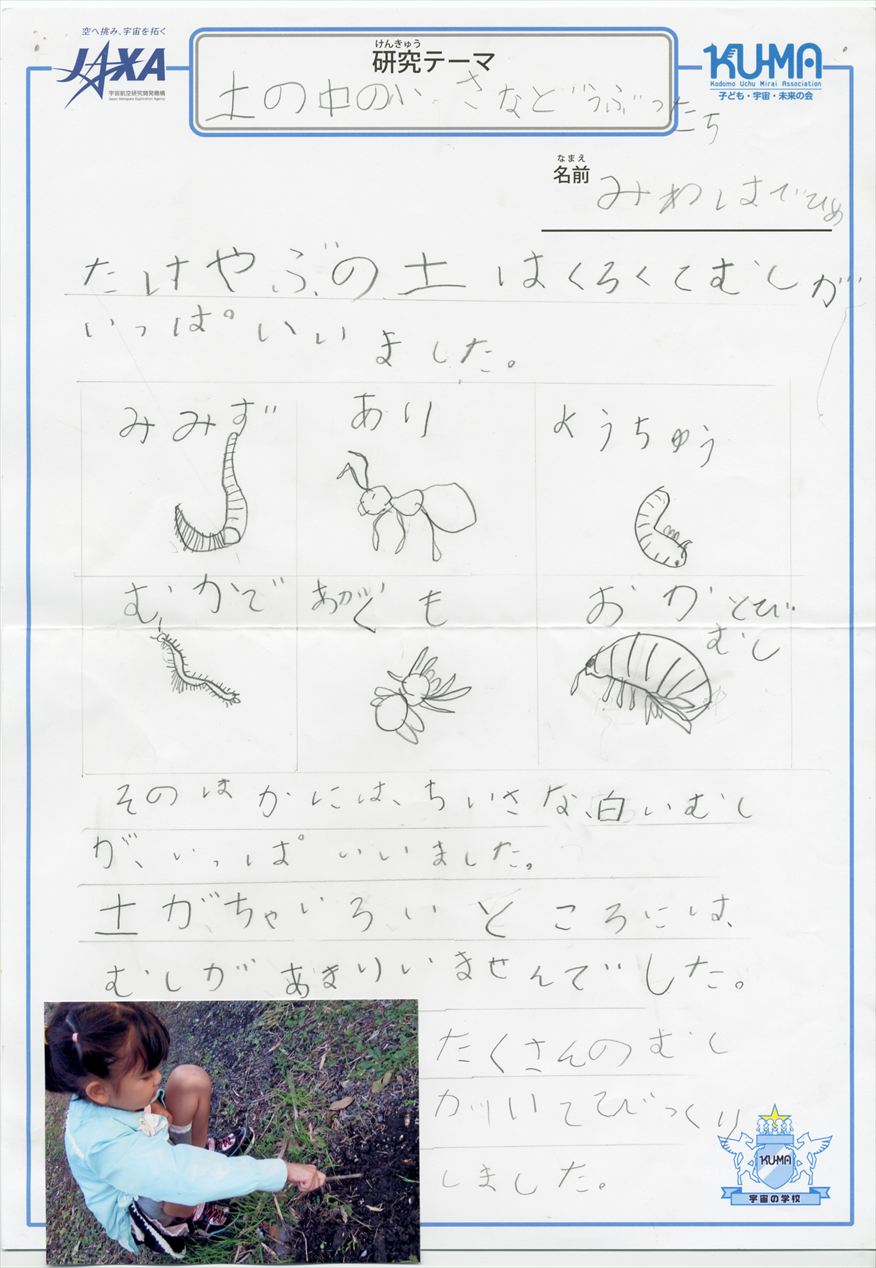 空へ挑み、宇宙を拓く
JAXA
宇宙航空研究開発機構
Japan Aerospace Exploration Agency
けんきゅう
研究テーマ
土の中のいさなどうぶつたち
KU-MA
Kodomo Uchu Mirai Association
子ども・宇宙・未来の会
なまえ
名前
みわ
たけやぶの土はくろくてむしが
いっぱいいました。
みみず
あり
ようちゅう
むかで
ぐも
おかとび
むし
そのほかには、ちいさな、白いむし
が、いっぱいいました。
土がちゃいろいところには、
むしがあまりいませんでした。
たくさんのむし
がいてびっくり
しました。
KU-MA
宇宙の学校